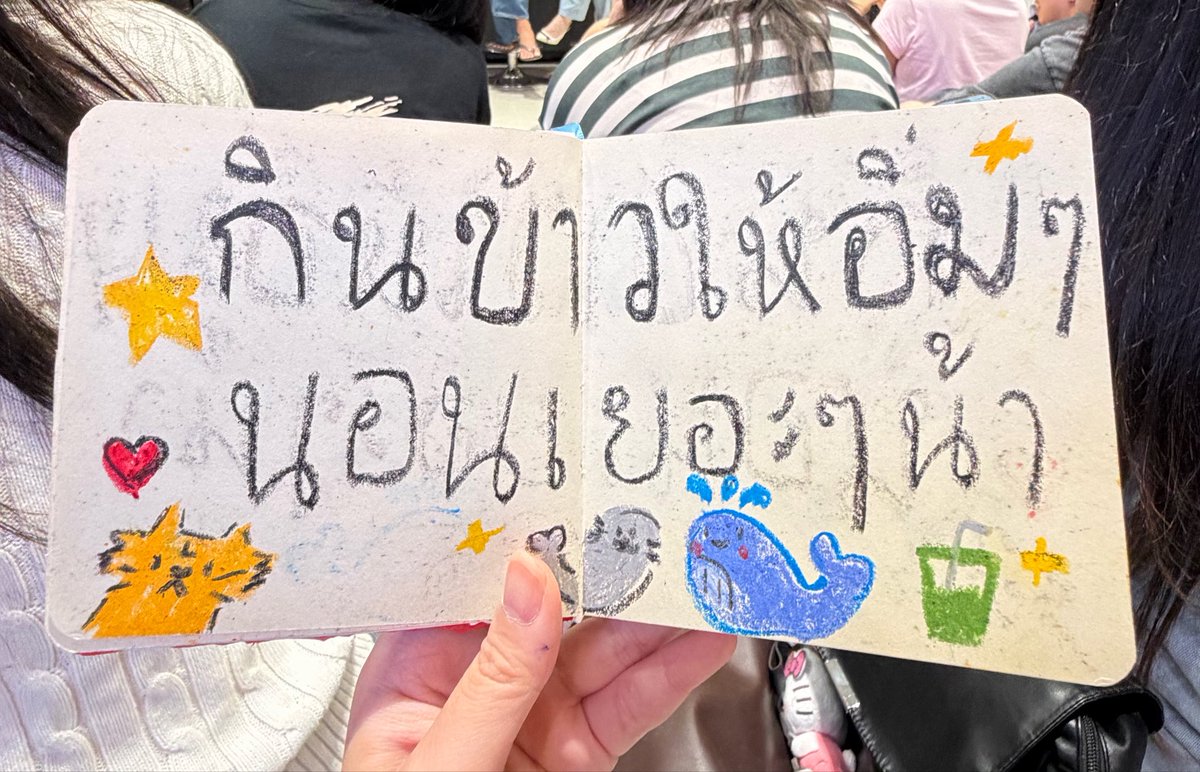 กินข้าวให้อิ่มๆ
นอนเยอะๆน้า